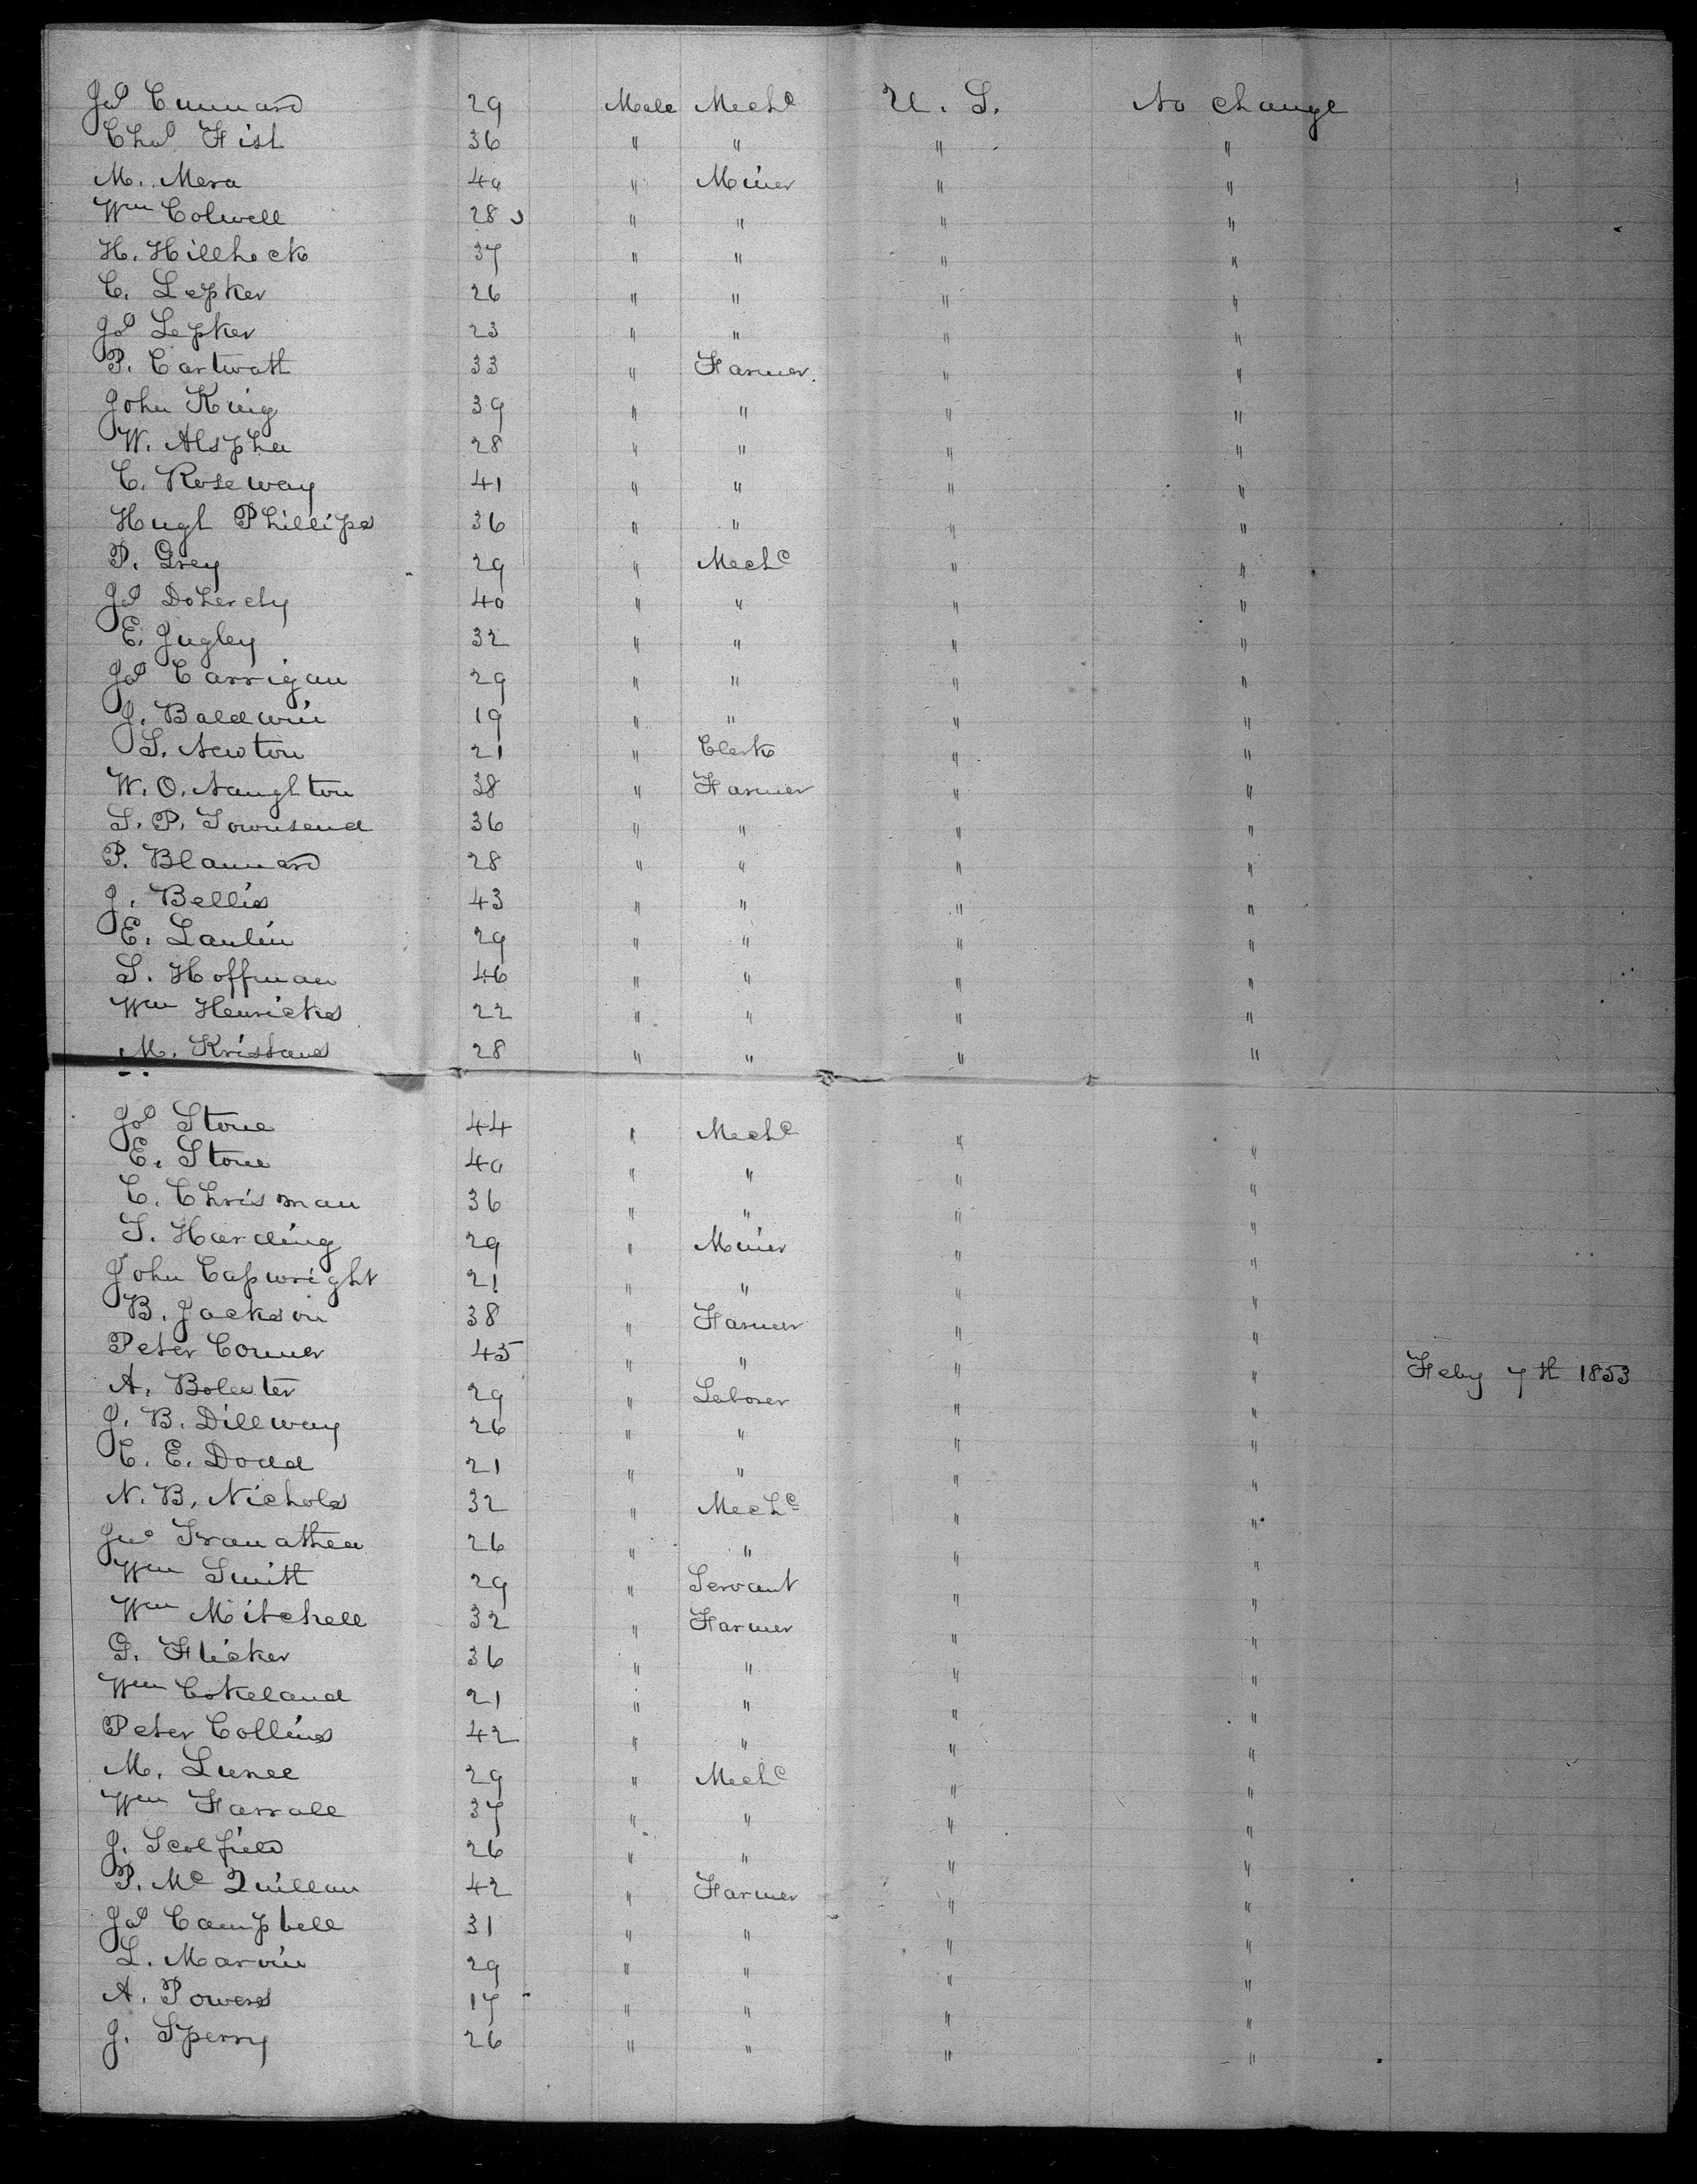 Jas Cunnard 29 Male Mechc U. S. No change
Chas Fish 36 " " " "
M. Mera 40 " Miner " "
Wm Colwell 28 " " " "
H. Hillhock 37 " " " "
C. Lepker 26 " " " "
Jos Lepker 23 " " " "
P. Cartwatt 33 " Farmer. " "
John King 39 " " " "
W. Alspha 28 " " " "
C. Roseway 41 " " " "
Hugh Phillips 36 " " " "
P. Grey 29 " Mechc " "
Jas Doherchy 40 " " " "
E. Jugley 32 " " " "
Jas Carrigan 29 " " " "
J. Baldwin 19 " " " "
S. Newton 21 " Clerk " "
W. O. Naughton 38 " Farmer " "
S. P. Townsend 36 " " " "
P. Blannard 28 " " " "
J. Bellis 43 " " " "
E. Laulin 29 " " " "
S. Hoffman 46 " " " "
Wm Henricks 22 " " " "
M. Kristans 28 " " " "
Jos Stone 44 " Mechc " "
E. Stone 40 " " " "
C. Chrisman 36 " " " "
T. Harding 29 " Miner " "
John Capwright 21 " " " "
B. Jackson 38 " Farmer " "
Peter Conner 45 " " " " Feby 7th 1853
A. Bolester 29 " Laborer " "
J. B. Dillway 26 " " " "
C. E. Dodd 21 " " " "
N. B. Nichols 32 " Mechc " "
Jno Tranathea 26 " " " "
Wm Smith 29 " Servant " "
Wm Mitchell 32 " Farmer " "
G. Flicker 36 " " " "
Wm Cokeland 21 " " " "
Peter Collins 42 " " " "
M. Lunee 29 " Mechc " "
Wm Farrall 37 " " " "
J. Scolfield 26 " " " "
P. Mc Quillan 42 " Farmer " "
Jas Campbell 31 " " " "
L. Marvin 29 " " " "
A. Powers 17 " " " "
J. Sperry 26 " " " "